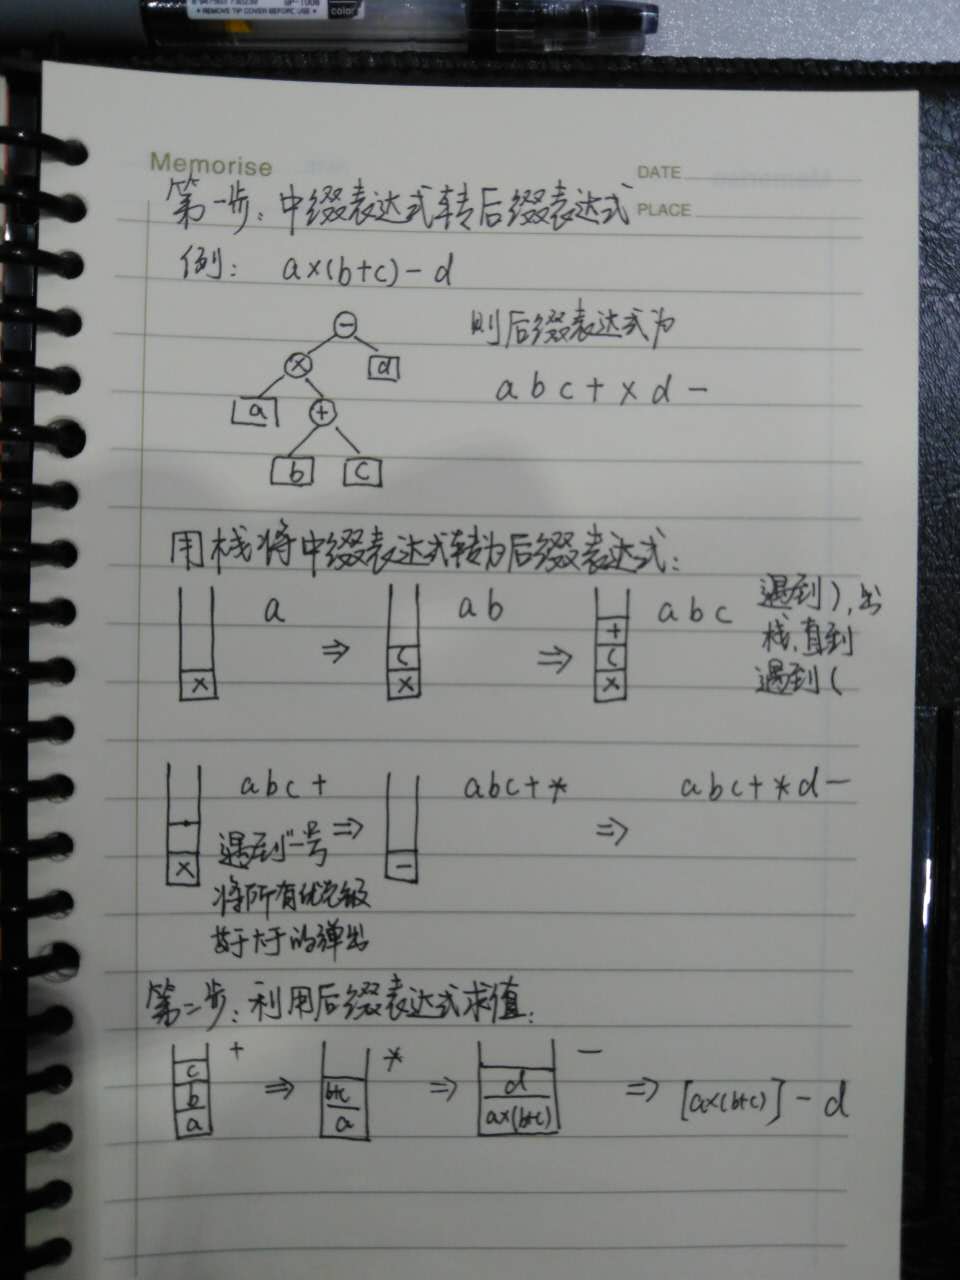 GP-1008
REMOVE TIP COVER BEFORE USE
color
Memorise
DATE
PLACE
第一步：中缀表达式转后缀表达式
例： a×(b+c)-d
则后缀表达式为
a b c + × d -
-
× d
a +
b c
用栈将中缀表达式转为后缀表达式：
a ⇒ a b ⇒ a b c
遇到），出
栈，直到
遇到（
+
( (
× × ×
a b c + ⇒ a b c + * ⇒ a b c + * d -
遇到"-号
将所有优先级
高于大于的弹出
× -
第二步：利用后缀表达式求值：
+ * -
c
b b+c d
a a a×(b+c)
⇒ ⇒ ⇒ [a×(b+c)] - d